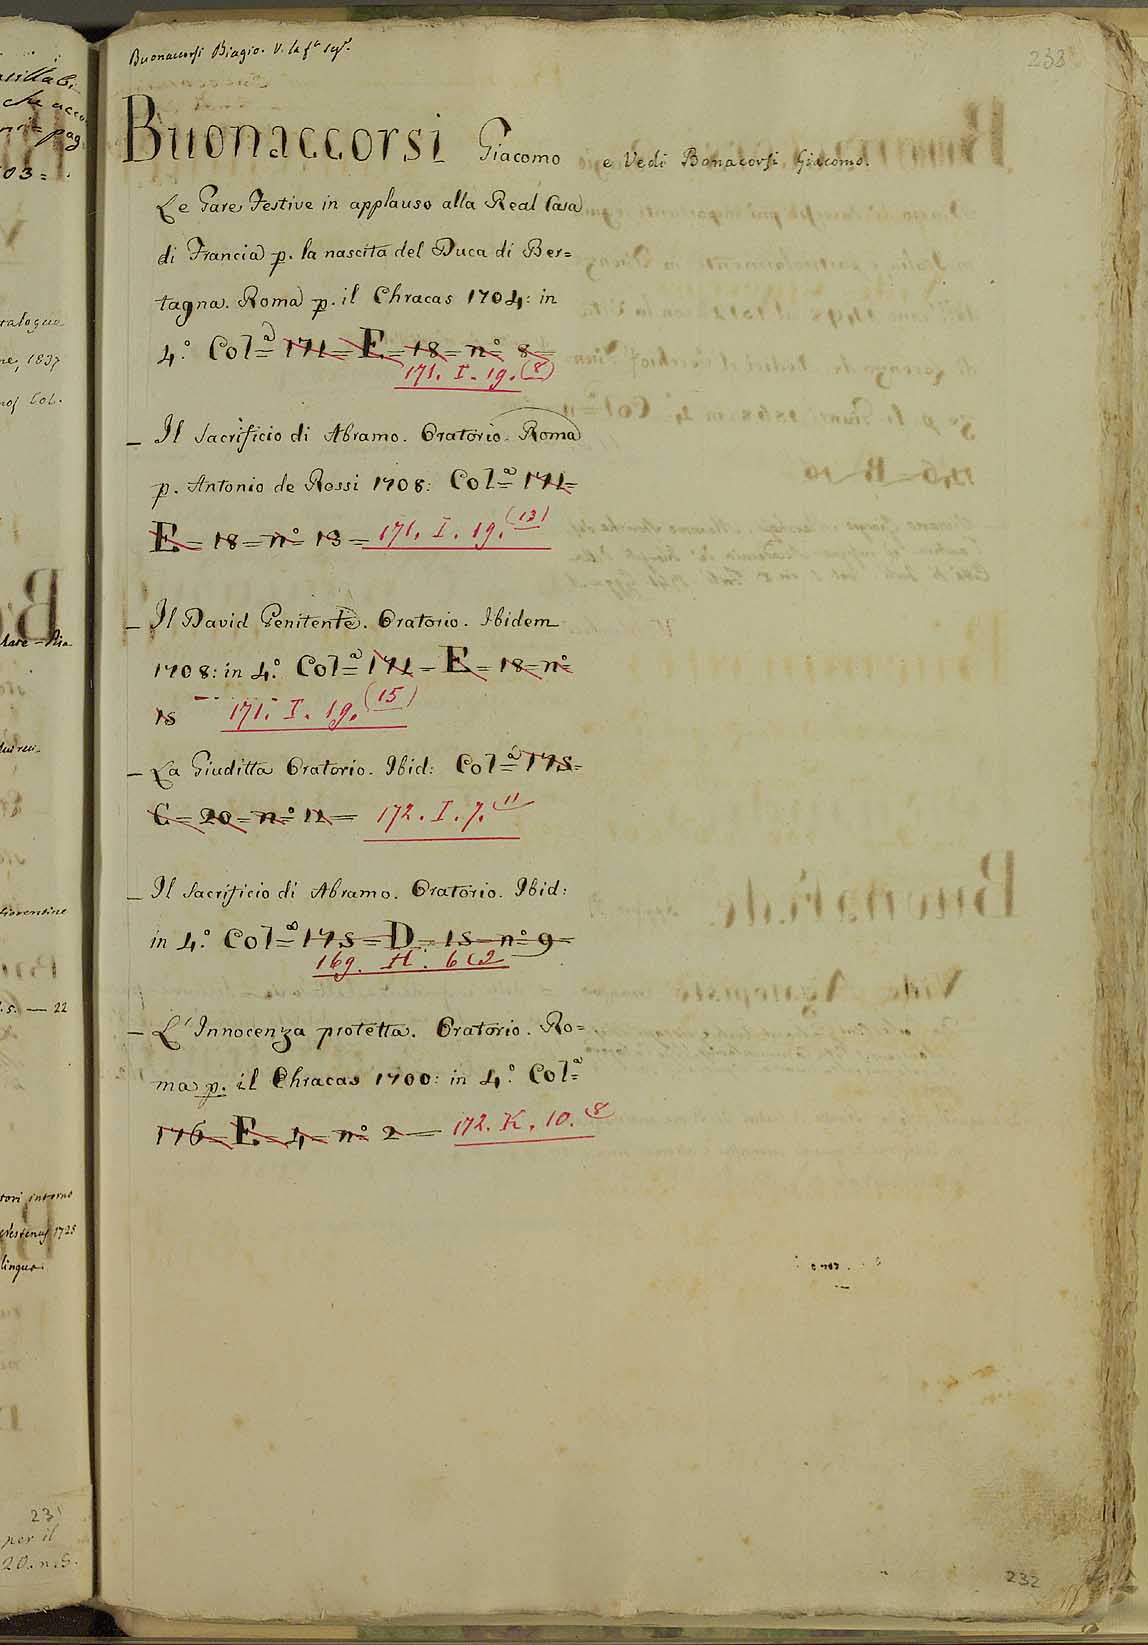 Buonaccorsi Biagio. V. la
233
Buonaccorsi Giacomo e Vedi Bonacorsi Giacomo.
Le Gare Festive in applauso alla Real Casa
di Francia p. la nascita del Duca di Ber=
tagna. Roma p. il Chracas 1704: in
4.° Col=a 171= E = 18 = n° 8=
171. I. 19. (8)
_ Il Sacrificio di Abramo. Oratorio. Roma
p. Antonio de Rossi 1708: Col=a 171=
E = 18 = n° 13 = 171. I. 19. (13)
_ Il David Penitente. Oratorio. Ibidem
1708: in 4.° Col=a 171 = E = 18 = n°
15 171. I. 19. (15)
_ La Giuditta Oratorio. Ibid: Col=a 175=
C = 20 = n° 11 = 172. I. 7. 11
_ Il Sacrificio di Abramo. Oratorio. Ibid:
in 4.° Col=a 175 = D = 15 = n° 9=
169. H. 6 (9
_ L'Innocenza protetta. Oratorio. Ro=
ma p. il Chracas 1700: in 4.° Col=a
176 = E = 4 = n° 2 — 172. K. 10. 8
232
talogue
ne, 1837
Col.
03=
pag
s. — 22
fiorentine
tori intorno
1725
lingua
23
per il
20. n. 5.